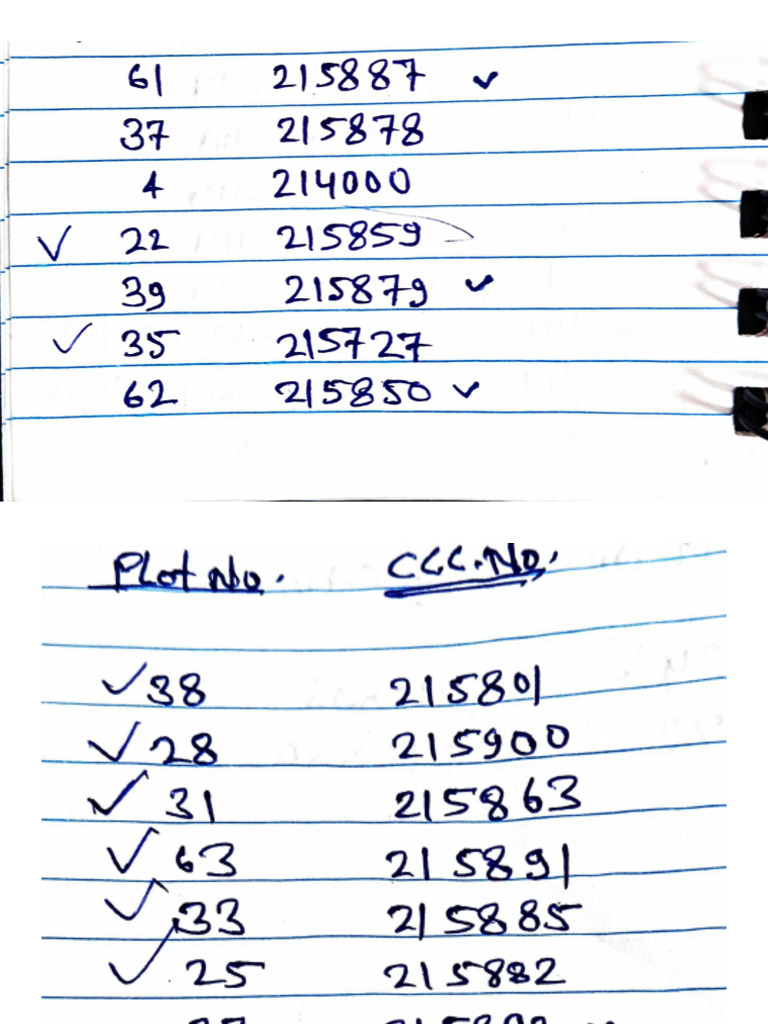 61 215887 ✓
37 215878
4 214000
✓ 22 215859
39 215879 ✓
✓ 35 215727
62 215850 ✓
Plot No. CCC.No.
✓ 38 215801
✓ 28 215900
✓ 31 215863
✓ 63 215891
✓ 33 215885
✓ 25 215882